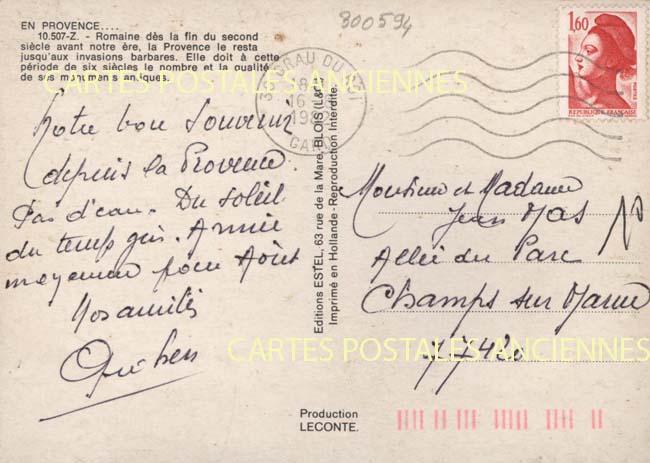 EN PROVENCE....
10.507-Z. - Romaine dès la fin du second
siècle avant notre ère, la Provence le resta
jusqu'aux invasions barbares. Elle doit à cette
période de six siècles le nombre et la qualité
de ses monuments antiques.
800594
1,60
30 GRAU DU ROI
GARD
CARTES POSTALES ANCIENNES
Notre bon Souvenir
depuis la Provence
Pas d'eau. Du soleil
du temps gris. Année
moyenne pour Août
Nos amitiés
Editions ESTEL, 63 rue de la Mare, BLOIS (L&C)
Imprimé en Hollande - Reproduction Interdite.
Monsieur et Madame
Jean MAS
Allée du Parc
Champs sur Marne
77420
CARTES POSTALES ANCIENNES
Production
LECONTE.